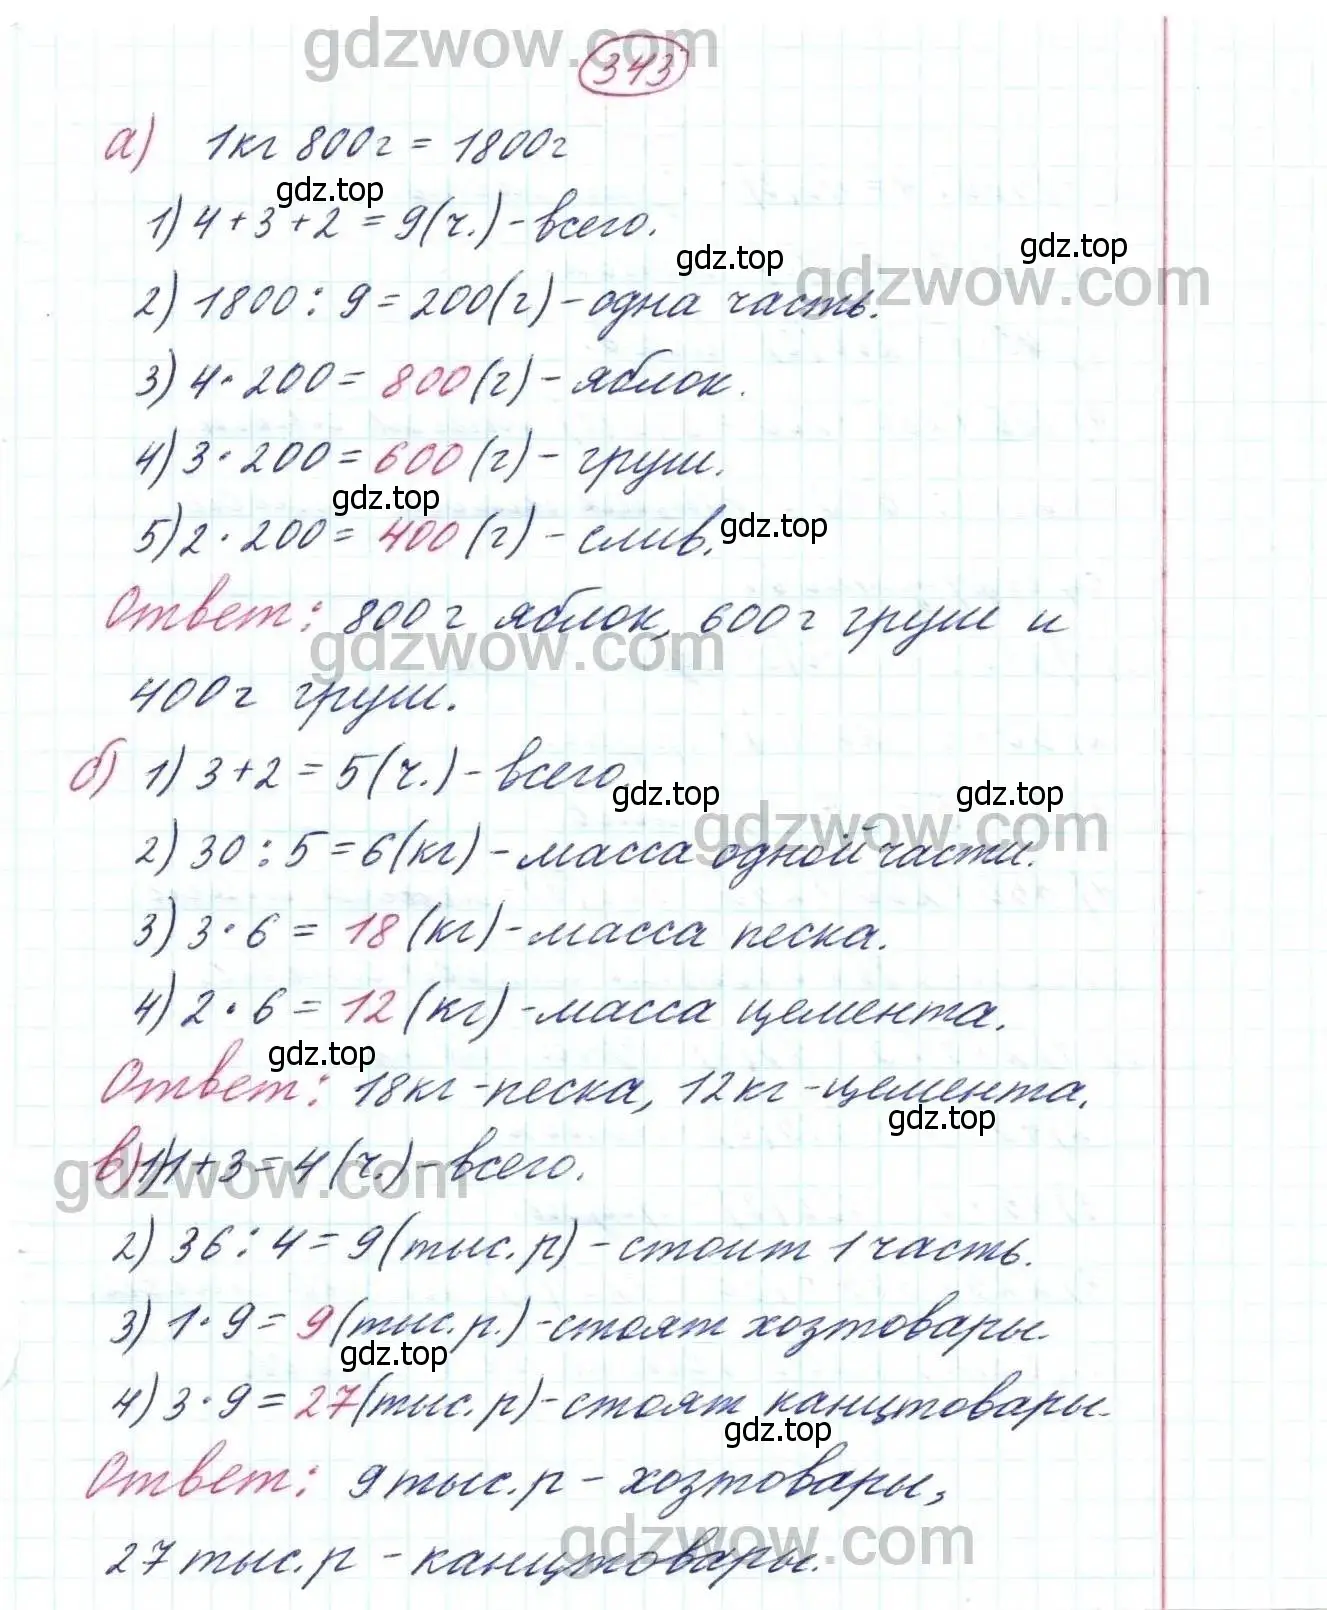 gdzwow.com
343
а) 1кг 800г = 1800г
gdz.top
1) 4+3+2=9(ч.)-всего.
gdz.top
gdz.top
gdzwow.com
2) 1800:9=200(г)-одна часть.
3) 4·200=800(г)-яблок.
4) 3·200=600(г)-груш.
gdz.top
5) 2·200=400(г)-слив.
gdz.top
Ответ: 800г яблок, 600г груш и
gdzwow.com
400г груш.
б) 1) 3+2=5(ч.)-всего.
gdz.top
gdz.top
gdzwow.com
2) 30:5=6(кг)-масса одной части.
3) 3·6=18(кг)-масса песка.
4) 2·6=12(кг)-масса цемента.
gdz.top
Ответ: 18кг-песка, 12кг-цемента.
gdz.top
в) 1) 1+3=4(ч.)-всего.
gdzwow.com
2) 36:4=9(тыс.р)-стоит 1 часть.
3) 1·9=9(тыс.р.)-стоят хозтовары.
gdz.top
4) 3·9=27(тыс.р)-стоят канцтовары.
gdz.top
Ответ: 9тыс.р-хозтовары,
gdzwow.com
27тыс.р-канцтовары.